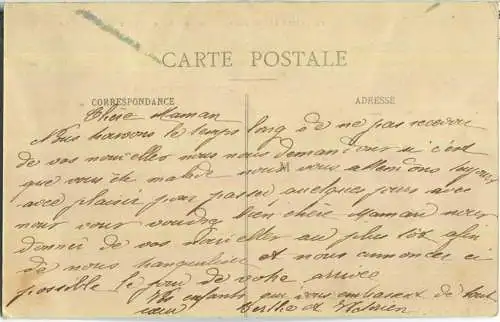 CARTE POSTALE
CORRESPONDANCE
ADRESSE
Chère Maman
Nous trouvons le temps long à de ne pas recevoir
de vos nouvelles nous nous demandons si c'est
que vous ête malade nous vous attendons toujours
avec plaisir pour passer quelques jours avec
nous vous voudrez bien chère Maman nous
donner de vos nouvelles au plus tôt afin
de nous tranquiliser et nous annoncer si
possible le jour de votre arrivée
Vos enfants qui vous embrassent de tout
cœur Berthe et